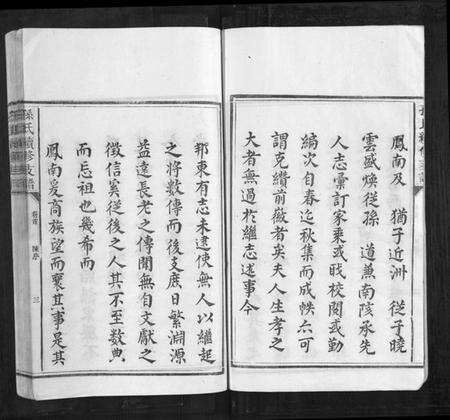 鳳南及　猶子近洲　從子曉
雲盛煥從孫　道薰南陔承先
人志彙訂家乘或戝校閱或勤
編次自春迄秋集而成帙亦可
謂克纘前徽者矣夫人生孝之
大者無過於繼志述事今
邦東有志未逮使無人以繼起
之將數傳而後支庶日繁淵源
益遠長老之傳聞無自文獻之
徵信奚從後之人其不至數典
而忘祖也幾希而
鳳南爰商族望而襄其事是其
孫氏續修支譜
卷首
陳序
三